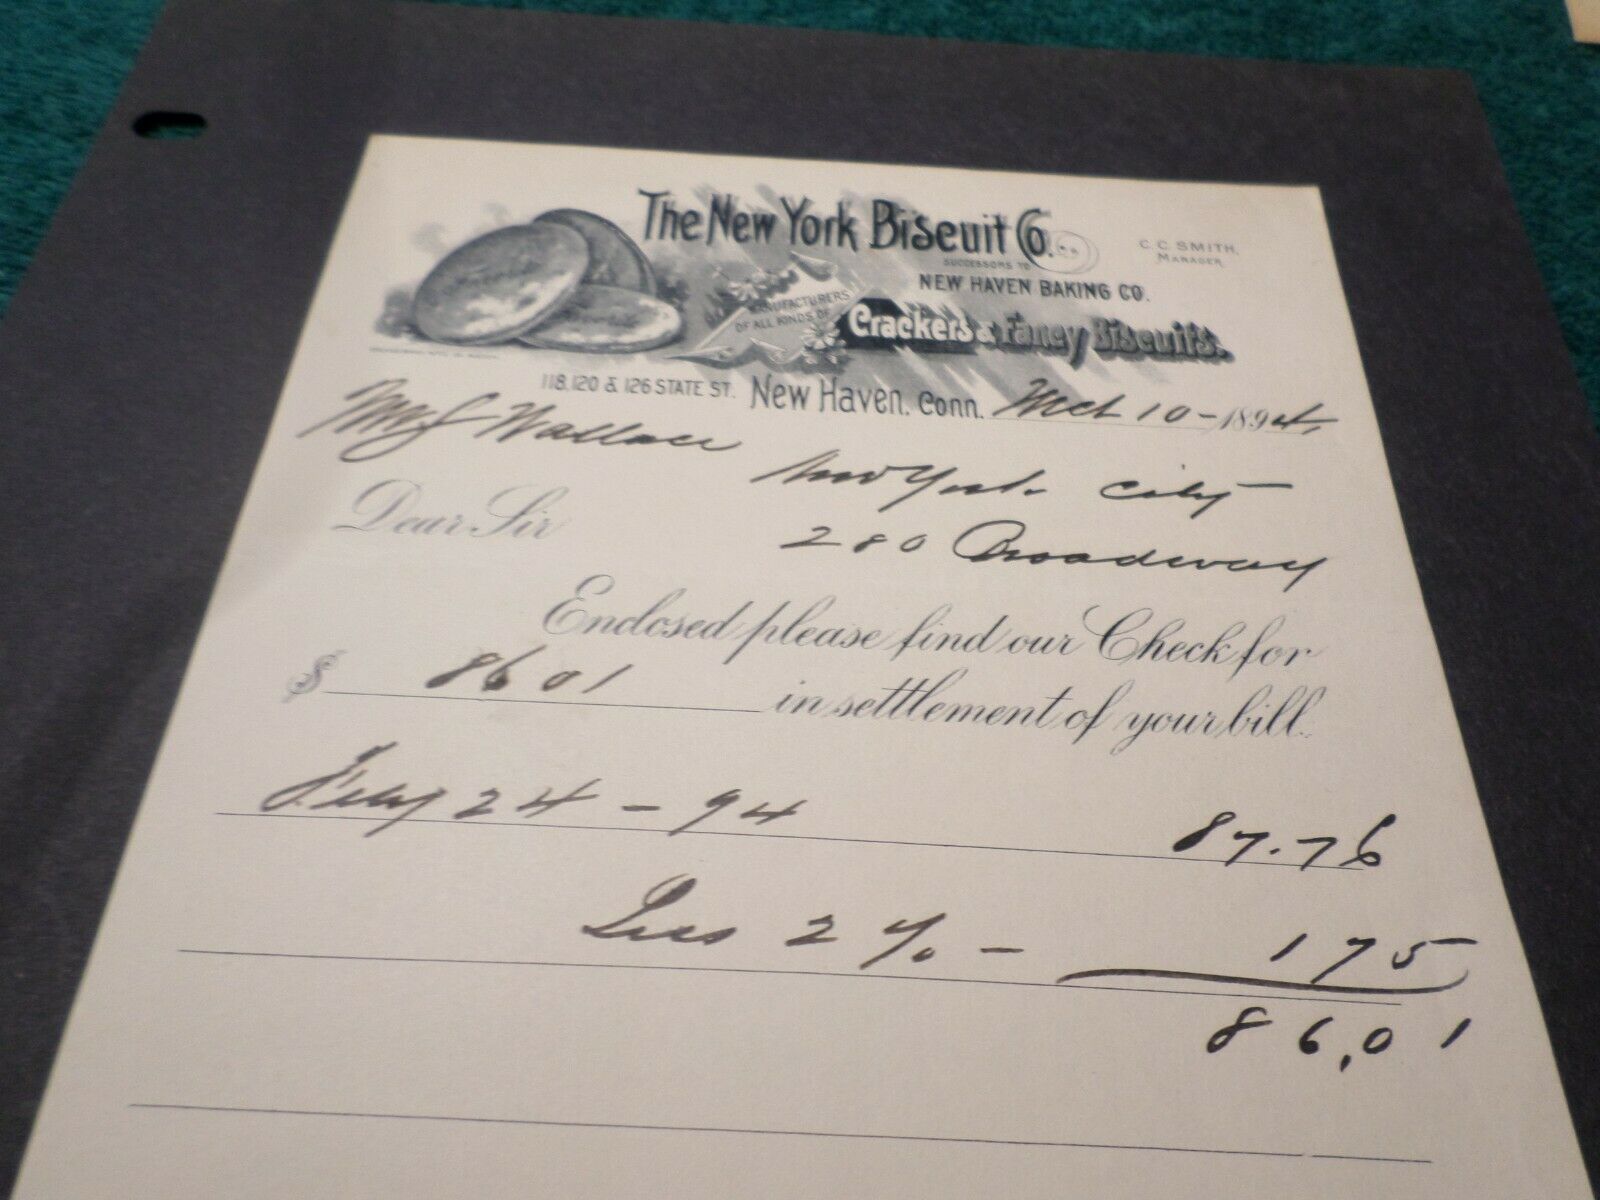 The New York Biscuit Co.
C. C. SMITH,
MANAGER
SUCCESSORS TO
NEW HAVEN BAKING CO.
MANUFACTURERS
OF ALL KINDS OF
Crackers & Fancy Biscuits.
118, 120 & 126 STATE ST. New Haven, Conn. Mch 10 - 1894,
Wallace
New York City
Dear Sir
280 Broadway
Enclosed please find our Check for
$ 86 01 in settlement of your bill.
Feby 24 - 94 87.76
Less 2 % - 1 75
86.01